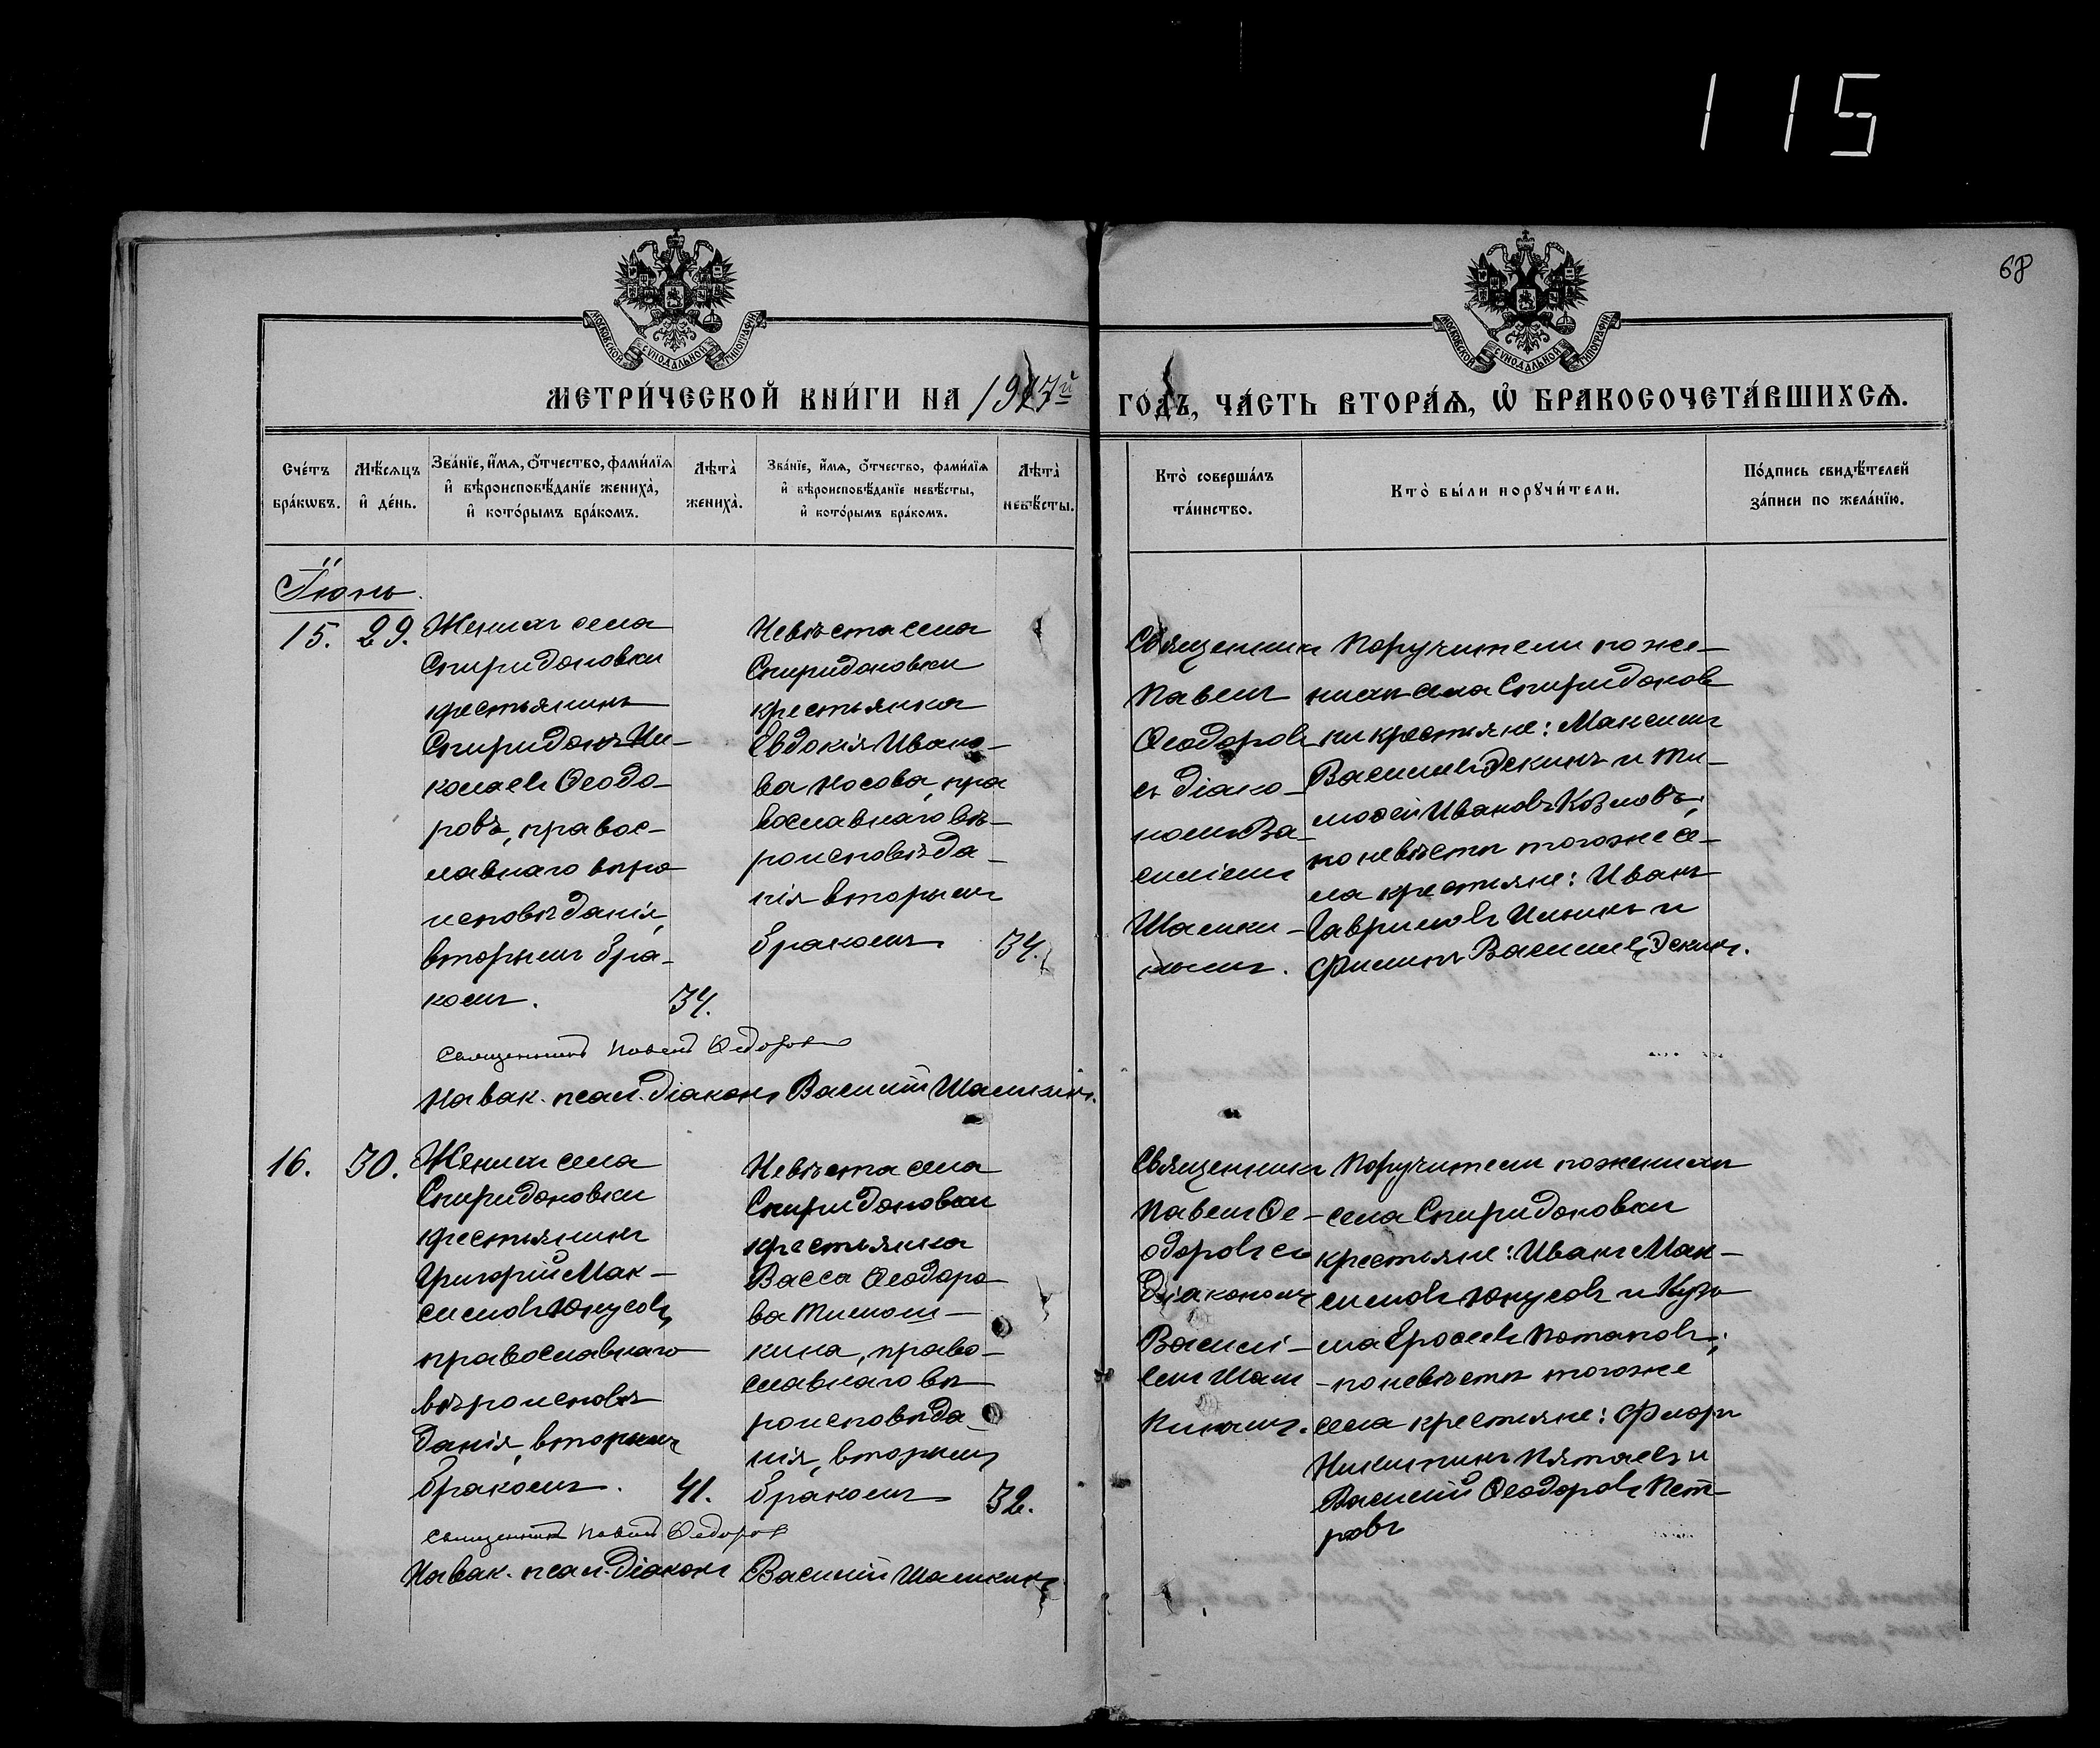 115
68
МОСКОВСКОЙ СѴНОДАЛЬНОЙ ТИПОГРАФІИ
МОСКОВСКОЙ СѴНОДАЛЬНОЙ ТИПОГРАФІИ
МЕТРИ́ЧЕСКОЙ КНИ́ГИ НА 1917й ГО́ДЪ, ЧА́СТЬ ВТОРА́Ѧ, Ѡ҆ БРАКОСОЧЕТА́ВШИХСѦ.
Сче́тъ бра́кѡвъ.
Мѣ́сѧцъ и҆ де́нь.
Зва́нїе, и҆́мѧ, ѻ҆́тчество, фами́лїѧ
и҆ вѣроисповѣ́данїе жениха̀,
и҆ кото́рымъ бра́комъ.
Лѣта̀ жениха̀.
Зва́нїе, и҆́мѧ, ѻ҆́тчество, фами́лїѧ
и҆ вѣроисповѣ́данїе невѣ́сты,
и҆ кото́рымъ бра́комъ.
Лѣта̀ невѣ́сты.
Кто̀ соверша́лъ
та́инство.
Кто̀ бы́ли порꙋчи́тели.
По́дпись свидѣ́телей
за́писи по жела́нїю.
Іюнь.
15. 29.
Женихъ села
Спиридоновки
крестьянинъ
Спиридонъ Ни-
колаевъ Ѳеодо-
ровъ, правос-
лавнаго вѣро
исповѣданія,
вторымъ бра-
комъ. 34.
Невѣста села
Спиридоновки
крестьянка
Евдокія Ивано-
ва Носова, пра
вославнаго вѣ-
роисповѣда-
нія вторымъ
бракомъ 34.
Священникъ
Павелъ
Ѳеодоровъ
съ діако-
номъ Ва-
силіемъ
Шашки-
нымъ.
Поручители по же-
нихѣ села Спиридонов
ки крестьяне: Максимъ
Васильевъ Эскинъ и Ти-
моѳей Ивановъ Козловъ;
по невѣстѣ тогоже се-
ла крестьяне: Иванъ
Гавриловъ Ильинъ и
Филиппъ Васильевъ Эскинъ.
Священникъ Павелъ Ѳедоровъ
На вак. псал. діаконъ Василій Шашкинъ.
16. 30.
Женихъ села
Спиридоновки
крестьянинъ
Григорій Мак-
симовъ Юнусовъ,
православнаго
вѣроисповѣ
данія, вторымъ
бракомъ. 41.
Невѣста села
Спиридоновки
крестьянка
Васса Ѳеодоро-
ва Тимош-
кина, право-
славнаго вѣ-
роисповѣда-
нія, вторымъ
бракомъ 32.
Священникъ
Павелъ Ѳе-
одоровъ съ
діакономъ
Василі-
емъ Шаш
кинымъ.
Поручители по женихѣ
села Спиридоновки
крестьяне: Иванъ Мак-
симовъ Юнусовъ и Кузь
ма Ероѳеевъ Потаповъ;
по невѣстѣ тогоже
села крестьяне: Флоръ
Никитинъ Пятаевъ и
Василій Ѳеодоровъ Пет
ровъ
Священникъ Павелъ Ѳедоровъ
На вак. псал. діаконъ Василій Шашкинъ.